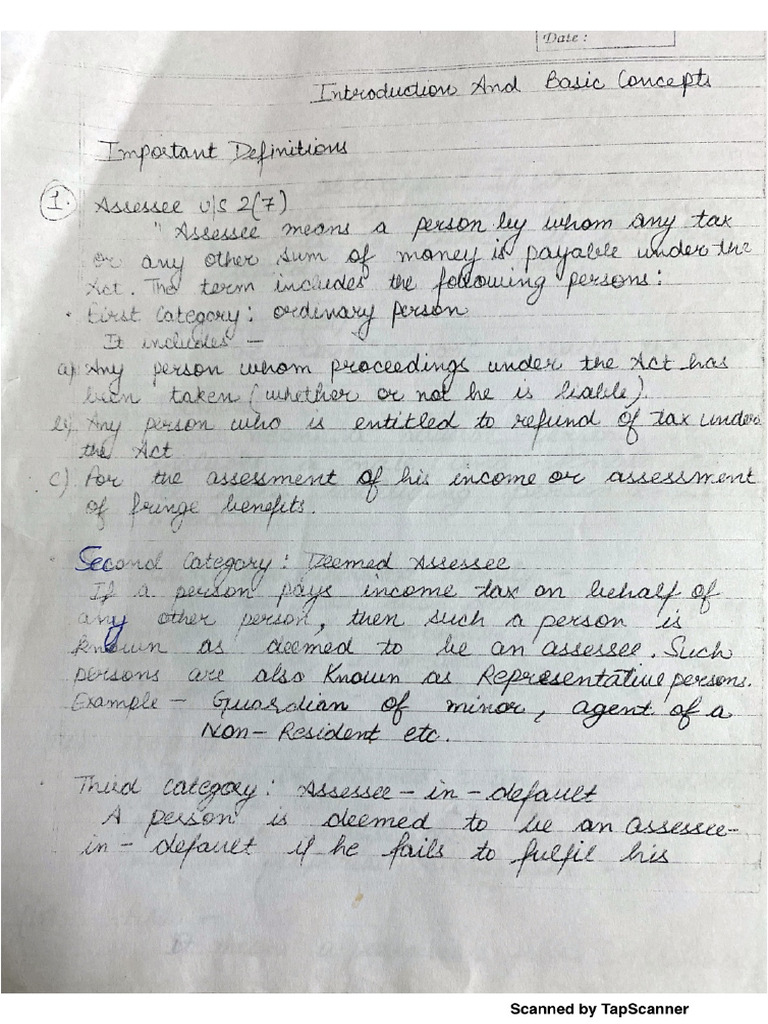 Date :
Introduction And Basic Concepts
Important Definitions
1. Assessee u/s 2(7)
" Assessee means a person by whom any tax
or any other sum of money is payable under the
Act. The term includes the following persons :
• First Category : ordinary person
It includes –
a) Any person whom proceedings under the Act has
been taken (whether or not he is liable).
b) Any person who is entitled to refund of tax under
the Act
c) For the assessment of his income or assessment
of fringe benefits.
• Second Category : Deemed Assessee
If a person pays income tax on behalf of
any other person, then such a person is
known as deemed to be an assessee. Such
persons are also known as Representative persons.
Example – Guardian of minor, agent of a
Non-Resident etc.
• Third Category : Assessee-in-default
A person is deemed to be an assessee-
in-default if he fails to fulfil his
Scanned by TapScanner